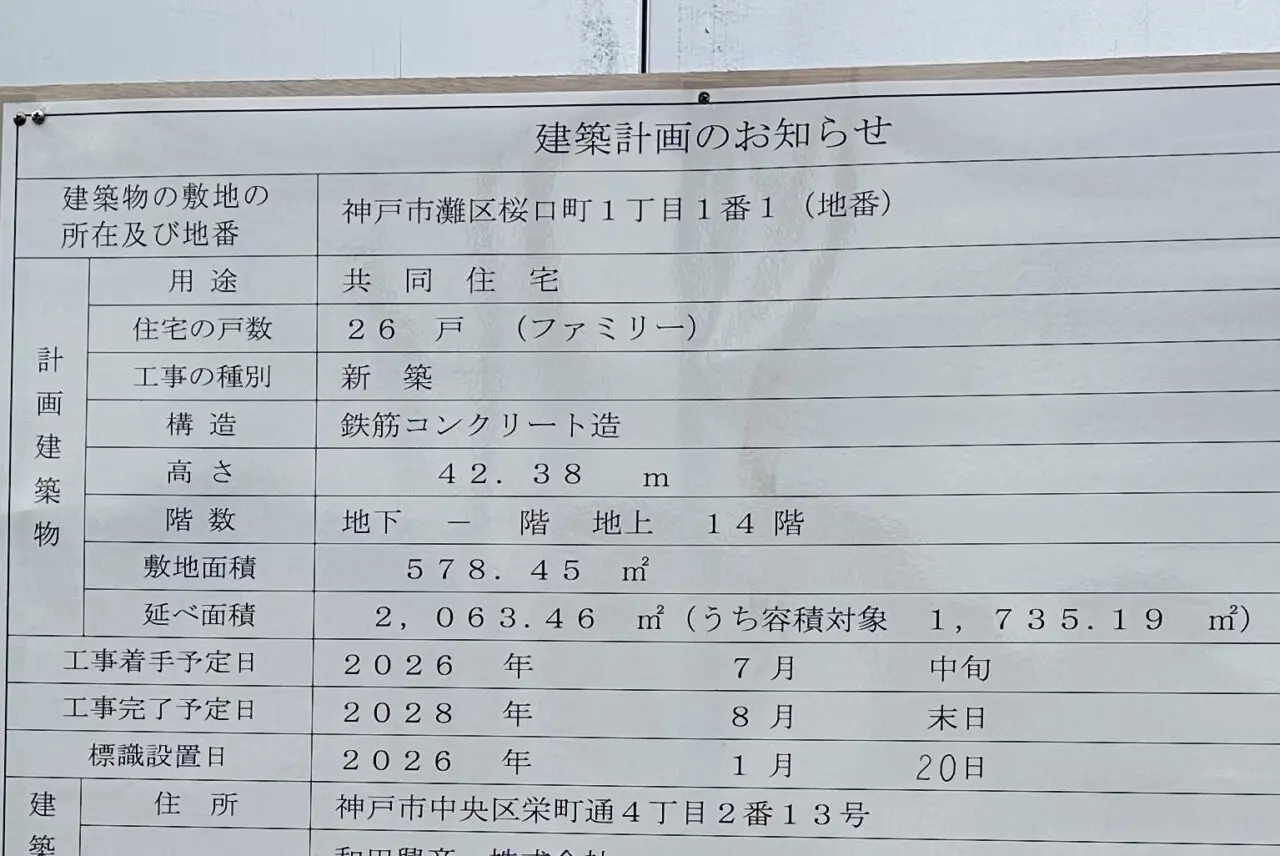 建築計画のお知らせ
建築物の敷地の
所在及び地番
神戸市灘区桜口町1丁目1番1（地番）
計画建築物
用途 共同住宅
住宅の戸数 26 戸 （ファミリー）
工事の種別 新築
構造 鉄筋コンクリート造
高さ 42.38 m
階数 地下 － 階 地上 14階
敷地面積 578.45 ㎡
延べ面積 2,063.46 ㎡（うち容積対象 1,735.19 ㎡）
工事着手予定日 2026 年 7月 中旬
工事完了予定日 2028 年 8月 末日
標識設置日 2026 年 1月 20日
建築
住所 神戸市中央区栄町通4丁目2番13号